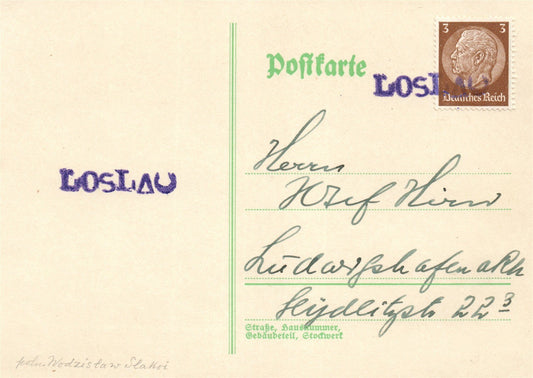 Postkarte
3 3
Deutsches Reich
LOSLAU
LOSLAU
Herrn
Josef Hirn
Ludwigshafen a Rh
Seydlitzstr 22 3
Straße, Hausnummer,
Gebäudeteil, Stockwerk
poln. Wodzisław Śląski